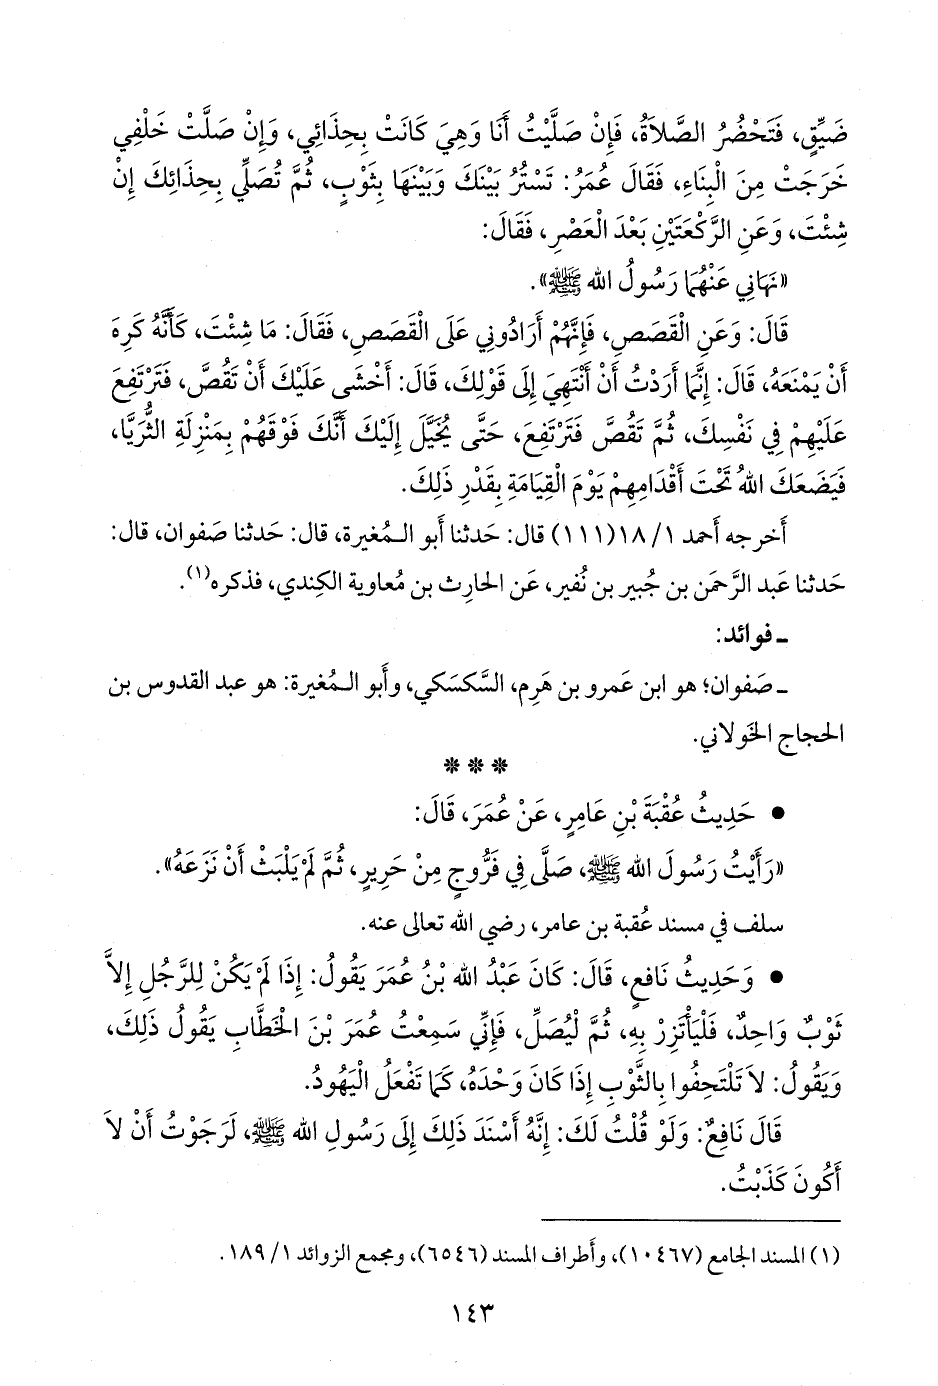 ضَيِّقٍ، فَتَحْضُرُ الصَّلاَةُ، فَإِنْ صَلَّيْتُ أَنَا وَهِيَ كَانَتْ بِحِذَائِي، وَإِنْ صَلَّتْ خَلْفِي
خَرَجَتْ مِنَ الْبِنَاءِ، فَقَالَ عُمَرُ: تَسْتُرُ بَيْنَكَ وَبَيْنَهَا بِثَوْبٍ، ثُمَّ تُصَلِّي بِحِذَائِكَ إِنْ
شِئْتَ، وَعَنِ الرَّكْعَتَيْنِ بَعْدَ الْعَصْرِ، فَقَالَ:
«نَهَانِي عَنْهُمَا رَسُولُ الله ﷺ».
قَالَ: وَعَنِ الْقَصَصِ، فَإِنَّهُمْ أَرَادُونِي عَلَى الْقَصَصِ، فَقَالَ: مَا شِئْتَ، كَأَنَّهُ كَرِهَ
أَنْ يَمْنَعَهُ، قَالَ: إِنَّمَا أَرَدْتُ أَنْ أَنْتَهِيَ إِلَى قَوْلِكَ، قَالَ: أَخْشَى عَلَيْكَ أَنْ تَقُصَّ، فَتَرْتَفِعَ
عَلَيْهِمْ فِي نَفْسِكَ، ثُمَّ تَقُصَّ فَتَرْتَفِعَ، حَتَّى يُخَيَّلَ إِلَيْكَ أَنَّكَ فَوْقَهُمْ بِمَنْزِلَةِ الثُّرَيَّا،
فَيَضَعَكَ اللهُ تَحْتَ أَقْدَامِهِمْ يَوْمَ الْقِيَامَةِ بِقَدْرِ ذَلِكَ.
أَخرجه أَحمد ١/ ١٨(١١١) قال: حَدثنا أَبو الـمُغيرة، قال: حَدثنا صَفوان، قال:
حَدثنا عَبد الرَّحمَن بن جُبير بن نُفير، عَن الحارِث بن مُعاوية الكِندي، فذكره(١).
ـ فوائد:
ـ صَفوان؛ هو ابن عَمرو بن هَرِم، السَّكسَكي، وأَبو الـمُغيرة: هو عبد القدوس بن
الحجاج الخَولاني.
***
• حَدِيثُ عُقْبَةَ بْنِ عَامِرٍ، عَنْ عُمَرَ، قَالَ:
«رَأَيْتُ رَسُولَ الله ﷺ، صَلَّى فِي فَرُّوجٍ مِنْ حَرِيرٍ، ثُمَّ لَمْ يَلْبَثْ أَنْ نَزَعَهُ».
سلف في مسند عُقبة بن عامر، رضي الله تعالى عنه.
• وَحَدِيثُ نَافِعٍ، قَالَ: كَانَ عَبْدُ الله بْنُ عُمَرَ يَقُولُ: إِذَا لَمْ يَكُنْ لِلرَّجُلِ إِلاَّ
ثَوْبٌ وَاحِدٌ، فَلْيَأْتَزِرْ بِهِ، ثُمَّ لْيُصَلِّ، فَإِنِّي سَمِعْتُ عُمَرَ بْنَ الْخَطَّابِ يَقُولُ ذَلِكَ،
وَيَقُولُ: لاَ تَلْتَحِفُوا بِالثَّوْبِ إِذَا كَانَ وَحْدَهُ، كَمَا تَفْعَلُ الْيَهُودُ.
قَالَ نَافِعٌ: وَلَوْ قُلْتُ لَكَ: إِنَّهُ أَسْنَدَ ذَلِكَ إِلَى رَسُولِ الله ﷺ، لَرَجَوْتُ أَنْ لاَ
أَكُونَ كَذَبْتُ.
(١) المسند الجامع (١٠٤٦٧)، وأطراف المسند (٦٥٤٦)، ومجمع الزوائد ١/ ١٨٩.
١٤٣